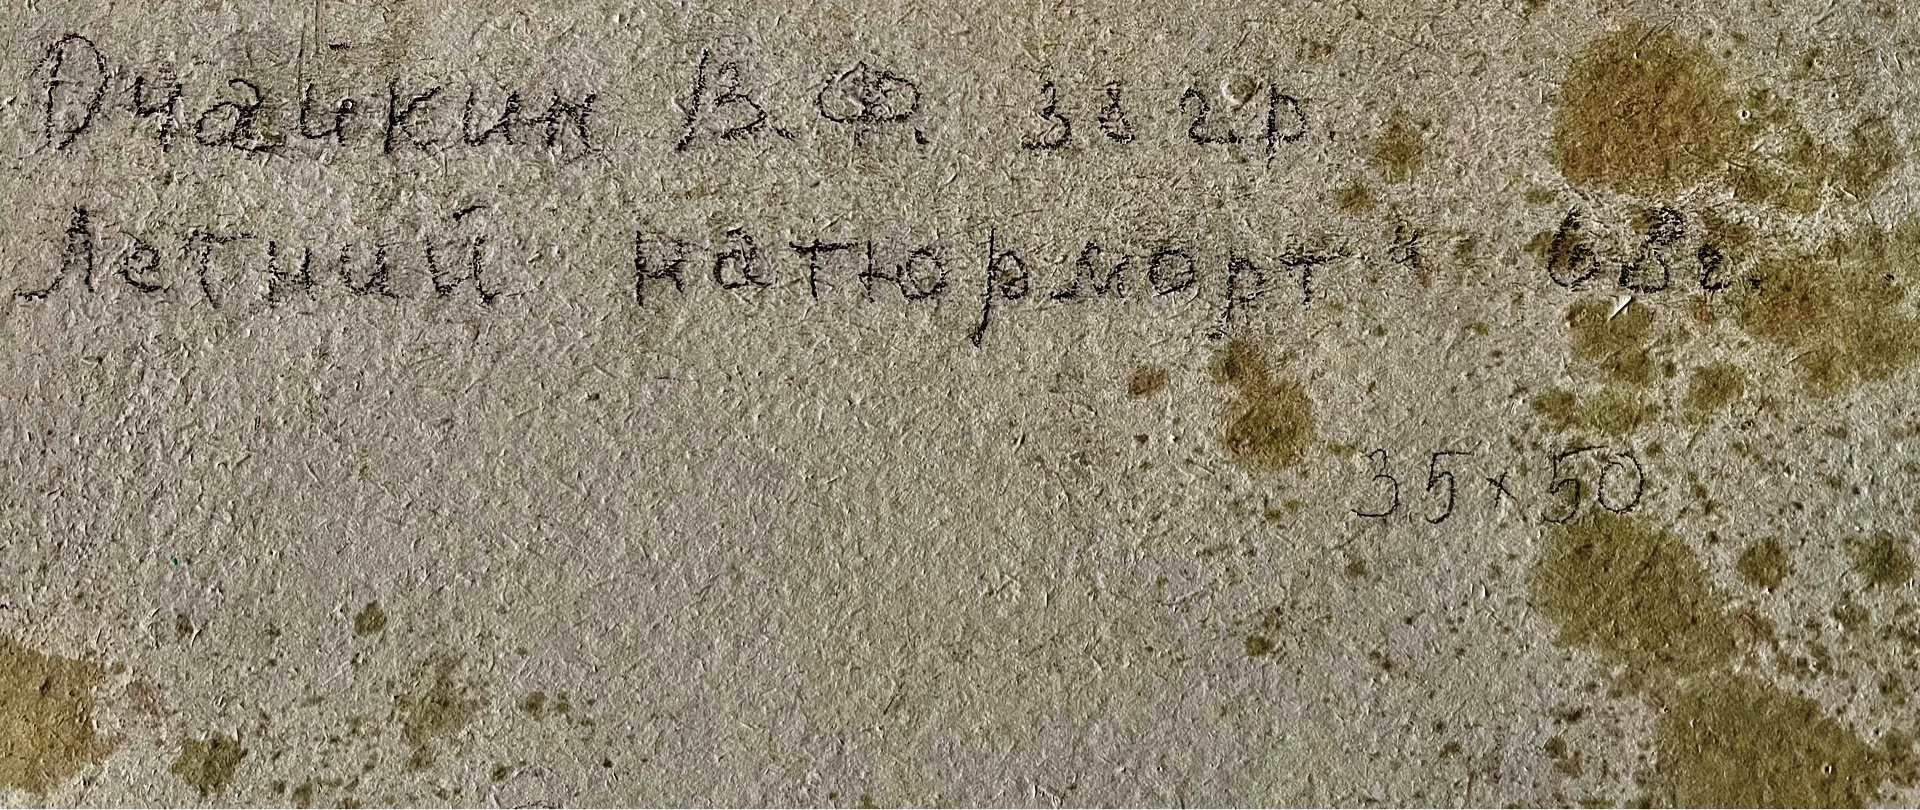 Очайкин В.Ф. 38 г.р.
Летний натюрморт" 68г.
35х50